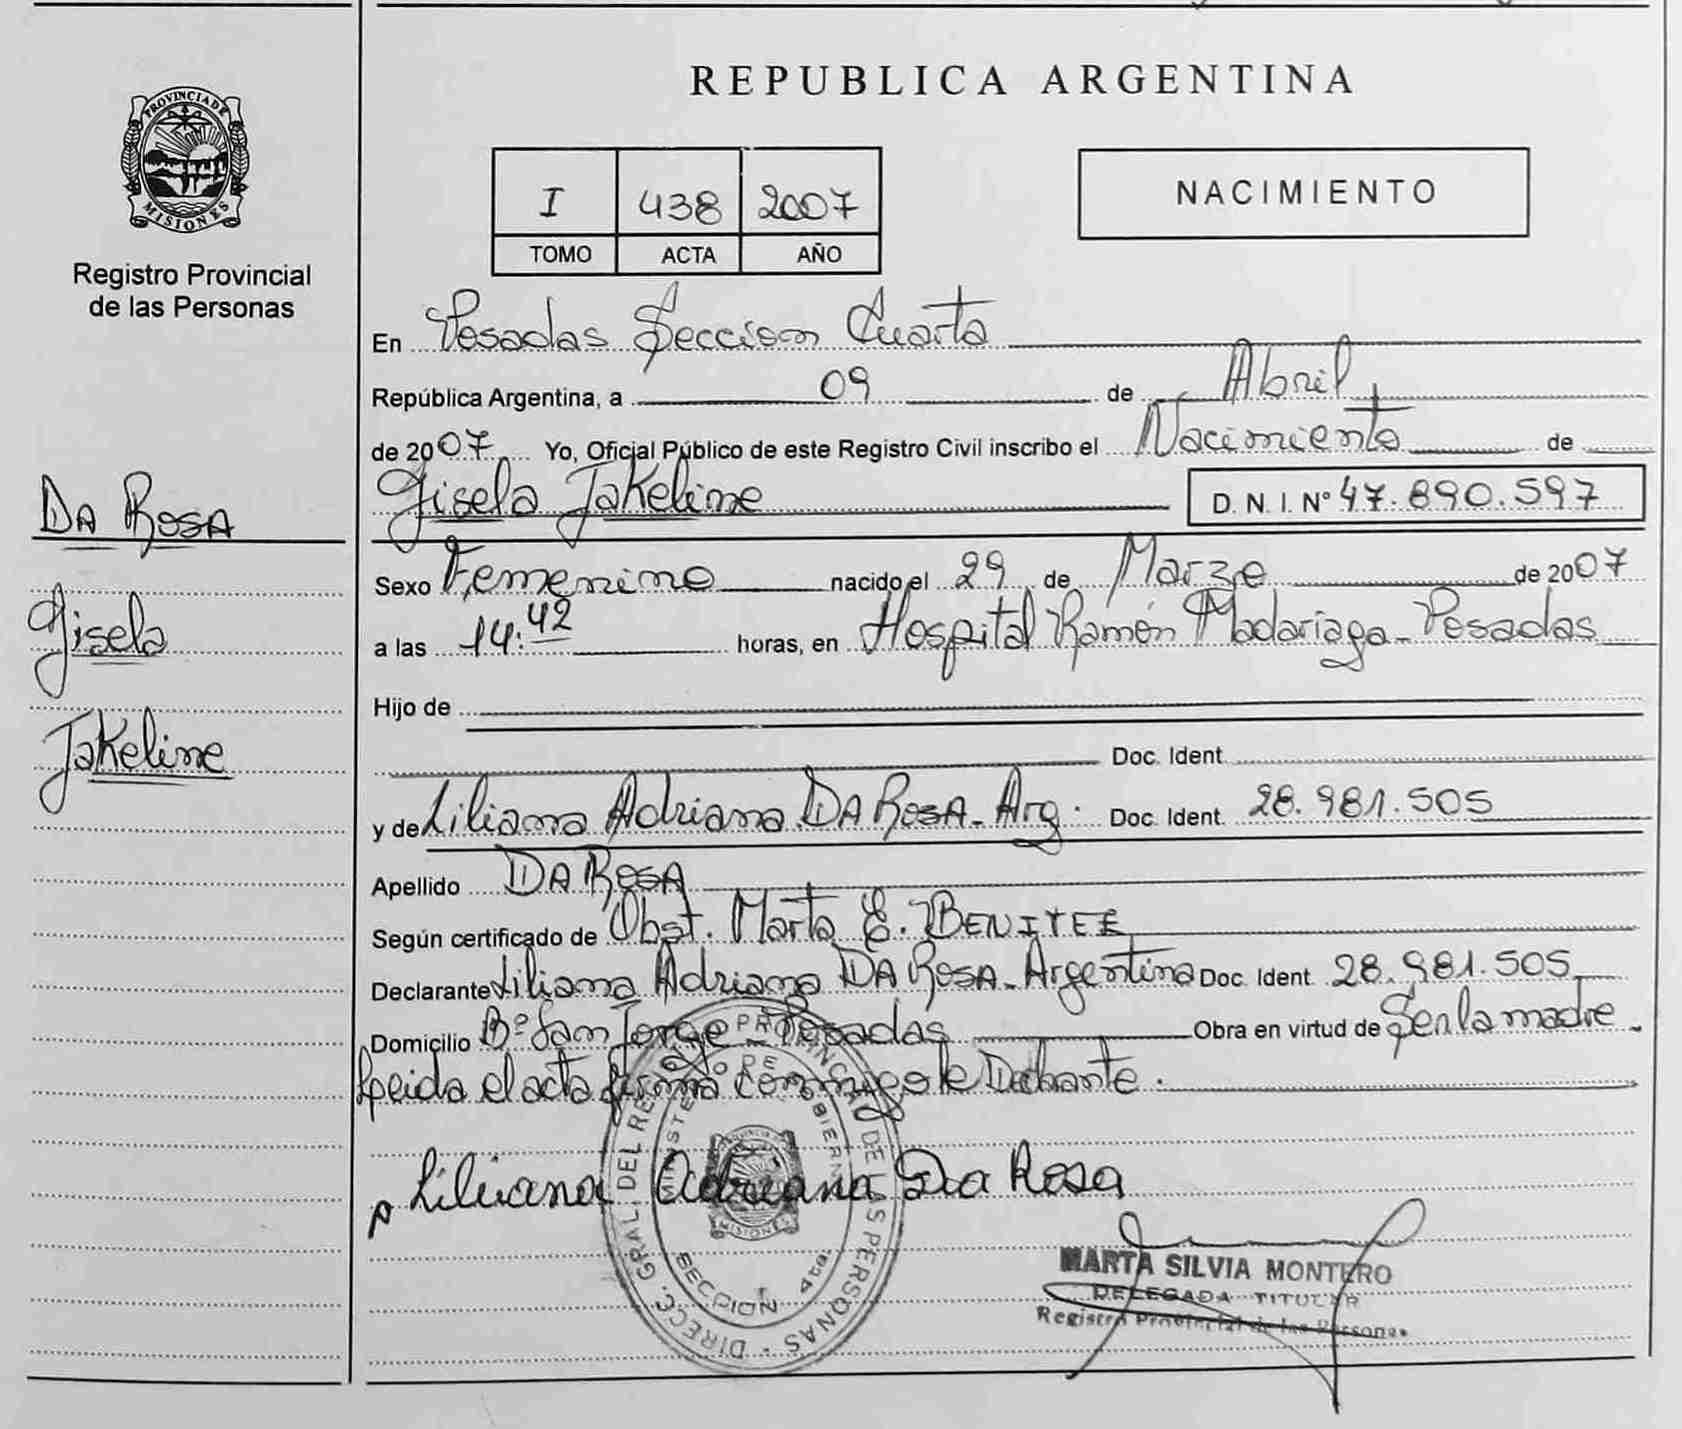 REPUBLICA ARGENTINA
PROVINCIA DE
MISIONES
Registro Provincial
de las Personas
I 438 2007
TOMO ACTA AÑO
NACIMIENTO
En Posadas Seccion Cuarta
República Argentina, a 09 de Abril
de 2007 Yo, Oficial Público de este Registro Civil inscribo el Nacimiento de
Gisela Jakeline D. N. I. Nº 47.890.597
DA ROSA
Gisela
Jakeline
Sexo Femenino nacido el 29 de Marzo de 2007
a las 14:42 horas, en Hospital Ramón Madariaga - Posadas
Hijo de
Doc. Ident.
y de Liliana Adriana DA ROSA - Arg. Doc. Ident. 28.981.505
Apellido DA ROSA
Según certificado de Obst. Marta E. BENITEZ
Declarante Liliana Adriana DA ROSA - Argentina Doc. Ident 28.981.505
Domicilio Bº San Jorge - Posadas Obra en virtud de Ser la madre
Leida el acta firma conmigo le Declarante.
Liliana Adriana Da Rosa
DIRECC. GRAL. DEL REG. PROVINCIAL DE LAS PERSONAS
MINISTERIO DE GOBIERNO
MISIONES
SECCION 4ta.
MARTA SILVIA MONTERO
DELEGADA TITULAR
Registro Provincial de las Personas